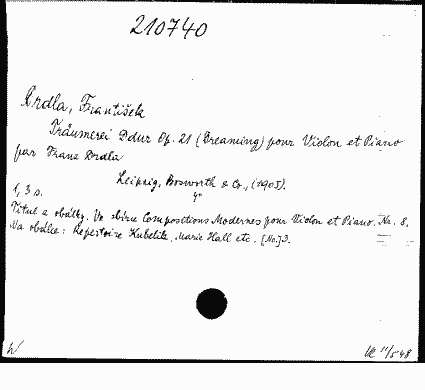 210740
Drdla, František
Träumerei Ddur Op. 21 (Dreaming) pour Violon et Piano
par Franz Drdla
Leipzig, Bosworth & Co., (1905).
4°
1, 3 s.
Titul z obálky. Ve sbírce Compositions Modernes pour Violon et Piano. No. 8.
Na obálce: Repertoire Kubelik, Marie Hall etc. [No.] 3.
11/5 48